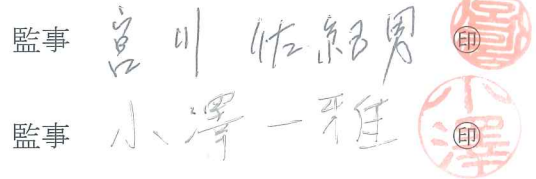 監事 宮川佐知男 ㊞
監事 小澤一雅 ㊞
小澤